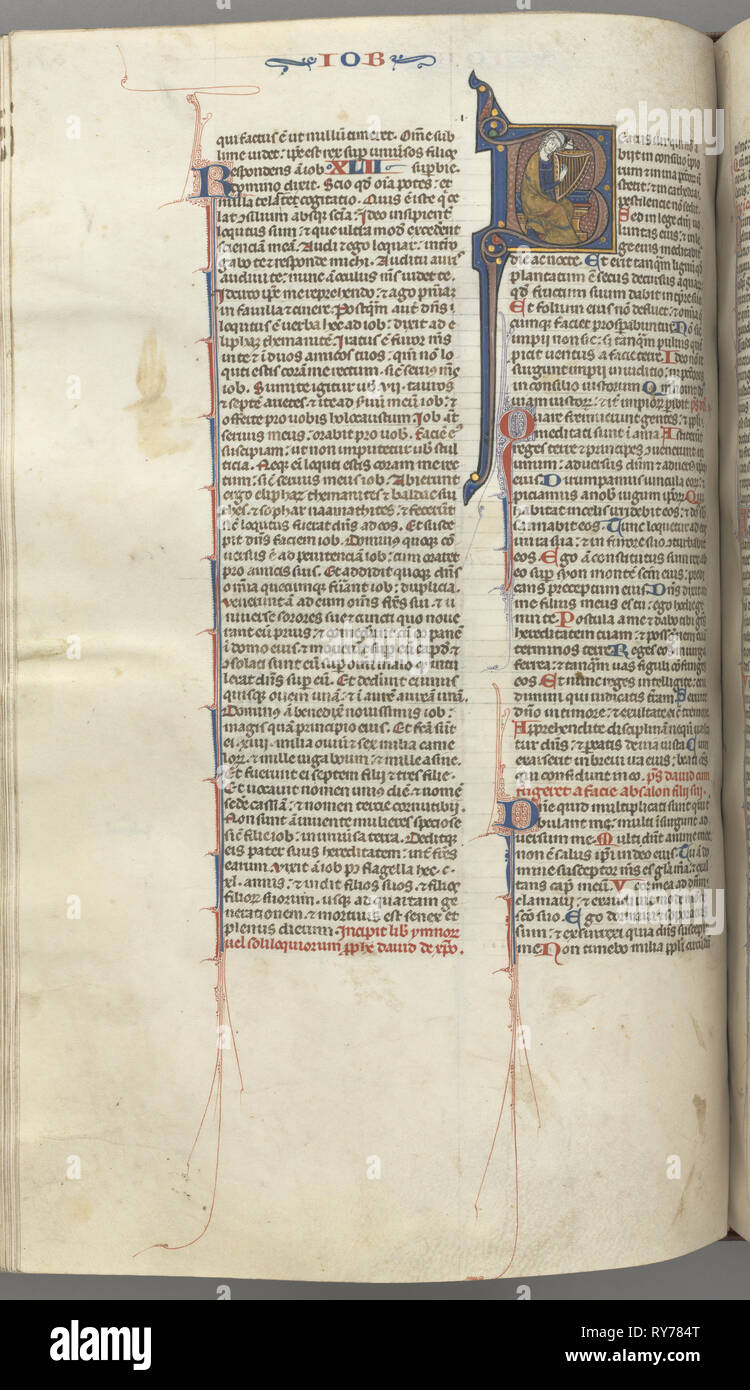 IOB
qui factus ē ut nullū timeret. Om̄e sub
lime uidet: ip̄e est rex sup̄ uniu̾sos filios
Respondens ā iob XLII sup̄bie.
domino dixit. Scio qđ oīa potes: et
nulla te latet cogitatio. Quis ē iste q̄ ce
lat ↄsilium absq; scīa? Ideo insipient̾
locutus sum: et que ultra modū excedent
scienciam meā. Audi et ego loquar: int̾ro
gabo te et responde michi. Auditu auris
audiui te: nunc ā oculus m̄s uidet te.
Idcirco ip̄e me reprehendo: et ago pn̄iam
in fauilla et cinere. Postq̄m aut̄ dn̄s
locutus ē uerba hec ad iob: dixit ad e
liphaz themanitē. Iratus ē furor m̄s
in te et ī duos amicos tuos: qm̄ nō lo
quti estis coram me rectum. sic̄ seruus m̄s
iob. Sumite igitur uob̄ .vii. tauros
et septē arietes: et ite ad s̾uū meū iob: et
offerte pro uobis holocaustum. Iob aūt
seruus meus: orabit pro uob̄. Faciē ei᾽
suscipiam: ut non imputetur uob̄ stul
ticia. Neq; eī locuti estis coram me rec
tum: sic̄ seruus meus iob. Abierunt
ergo eliphaz themanites et baldac su
ites et sophar naamathites: et fecerūt
sic̄ locutus fuerat dn̄s ad eos. Et susce
pit dn̄s faciem iob. Dominus quoq; cō
uersus ē ad penitenciā iob: cum oraret
pro amicis suis. Et addidit quoq; dn̄s
omīa quecumq; fu̾ant iob: duplicia.
Venerunt ā ad eum om̄s fr̄es sui. et u
niuerse sorores sue et cuncti quo noue
rant eū prius: et
ī domo eius et
ↄsolati sunt eū sup̄ om̄i malo q̄ intu
lerat dn̄s sup̄ eū. Et dederūt ei unus
quisq; ouem unā: et ī aurē aureā unā.
Dominus ā benedixit nouissimis iob:
magis quā principio eius. Et facta sūt
ei .xiiij. milia ouiū et sex milia came
lorum et mille iuga boum: et mille asine.
Et fuerunt ei septem filii et tres filie.
Et uocauit nomen unius diē et nomē
sede cassiā: et nomen tercie cornustibii.
Non sunt ā inuente mulieres speciose
sic̄ filie iob: in uniu̾sa terra. Deditq;
eis pater suus hereditatem: int̾ fr̄es
earum. Vixit ā iob p᾽ flagella hec .c.
xl. annis: et uidit filios suos. et filios
filiorum suorum. usq; ad quartam ge
nerationem. et mortuus est senex et
plenus dierum. Incipit lib̾ ymnorum
uel soliloquiorum pp̄he dauid de xp̄o.
Beatus uir qui nō a
biit in consilio īpio
rum: et in uia peccatorū nō
stetit: et in cathedra
pestilencie nō sedit.
Sed in lege dn̄i uo
luntas eius: et in le
ge eius meditabit̾
die ac nocte. Et erit tanq̄m lignū qđ
plantatum ē secus decursus aquarum:
qđ fructum suum dabit in tp̄re suo.
Et folium eius nō defluet: et om̄ia que
cumq; faciet prosp̾abuntur. Nō sic
impii non sic: sꝫ tanq̄m puluis quē
picit uentus a facie terre. Ideo nō re
surgunt impii in iudicio: neq; peccatores
in consilio iustorum. Qm̄ nouit dn̄s
uiam iustorum: et it̾ impiorum peribit.
Quare fremuerunt gentes: et pp̄li
meditati sunt īania. Astiterūt
reges terre et principes ↄuenerunt in
unum: aduersus dn̄m et adu̾sus xp̄m
eius. Dirumpamus uincula eorum: et
piciamus a nob̄ iugum ip̄orum. Qui
habitat in celis irridebit eos: et dn̄s sub
sannabit eos. Tunc loquetur ad eos
in ira sua: et in furore suo ↄturbabit
eos. Ego ā constitutus sum rex ab
eo sup̄ syon montē scm̄ eius: predi
cans preceptum eius. Dn̄s dixit ad
me filius meus es tu: ego hodie ge
nui te. Postula a me et dabo tibi gētes
hereditatem tuam: et possessionem tuā
terminos terre. Reges eos in uirga
ferrea: et tanq̄m uas figuli ↄfringes
eos. Et nunc reges intelligite: eru
dimini qui iudicatis t̾ram. Seruite
dn̄o in timore: et exultate ei cū tremore.
Apprehendite disciplinam neq̄n irasca
tur dn̄s: et peatis de uia iusta. Cum
exarserit in breui ira eius: beati om̄s
qui confidunt in eo. ps̄ dauid cum
fugeret a facie absalon filii sui.
Dn̄e quid multiplicati sunt qui t̾
bulant me: multi īsurgunt ad
uersum me. Multi dn̄t anime mee:
non ē salus ip̄i in deo eius. Tu ā do
mine susceptor m̄s es: gl̄ia mea et exal
tans caput meū. Voce mea ad dn̄m
clamaui: et exaudiuit me de monte
scō suo. Ego dormiui et soporatus
sum: et exsurrexi quia dn̄s suscepit
me. Non timebo milia pp̄li circūdātis
alamy
Image ID: RY784T
www.alamy.com